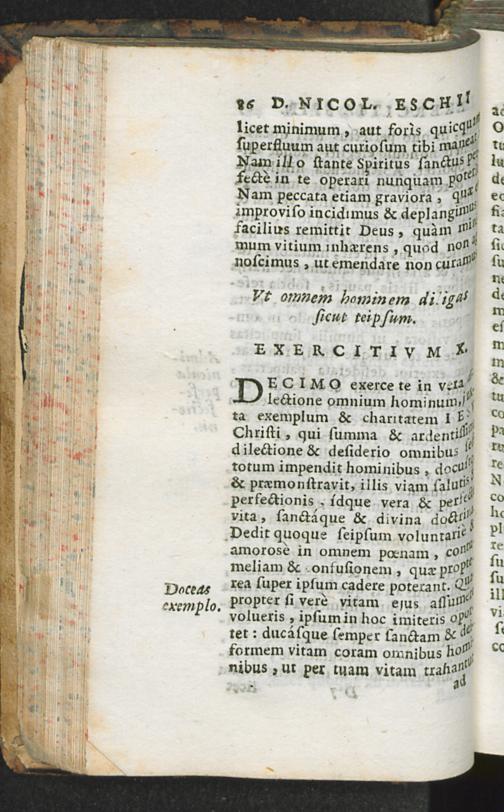 86 D. NICOL. ESCHII
licet minimum, aut foris quicquam
superfluum aut curiosum tibi maneat
Nam illo stante Spiritus sanctus per
fectè in te operari nunquam potest
Nam peccata etiam graviora, quæ
improviso incidimus & deplangimus
facilius remittit Deus, quàm mini
mum vitium inhærens, quod non
noscimus, ut emendare non curamus
Vt omnem hominem diligas
sicut teipsum.
EXERCITIVM X.
DECIMO exerce te in vera
lectione omnium hominum,
ta exemplum & charitatem IES
Christi, qui summa & ardentissim
dilectione & desiderio omnibus se
totum impendit hominibus, docuit
& præmonstravit, illis viam salutis
perfectionis, idque vera & perfect
vita, sanctáque & divina doctrina
Dedit quoque seipsum voluntariè &
amorosè in omnem pœnam, contu
meliam & confusionem, quæ propte
rea super ipsum cadere poterant. Qua
propter si verè vitam ejus assumere
volueris, ipsum in hoc imiteris opor
tet: ducásque semper sanctam & dei
formem vitam coram omnibus homi
nibus, ut per tuam vitam trahantur
ad
Doceas
exemplo.